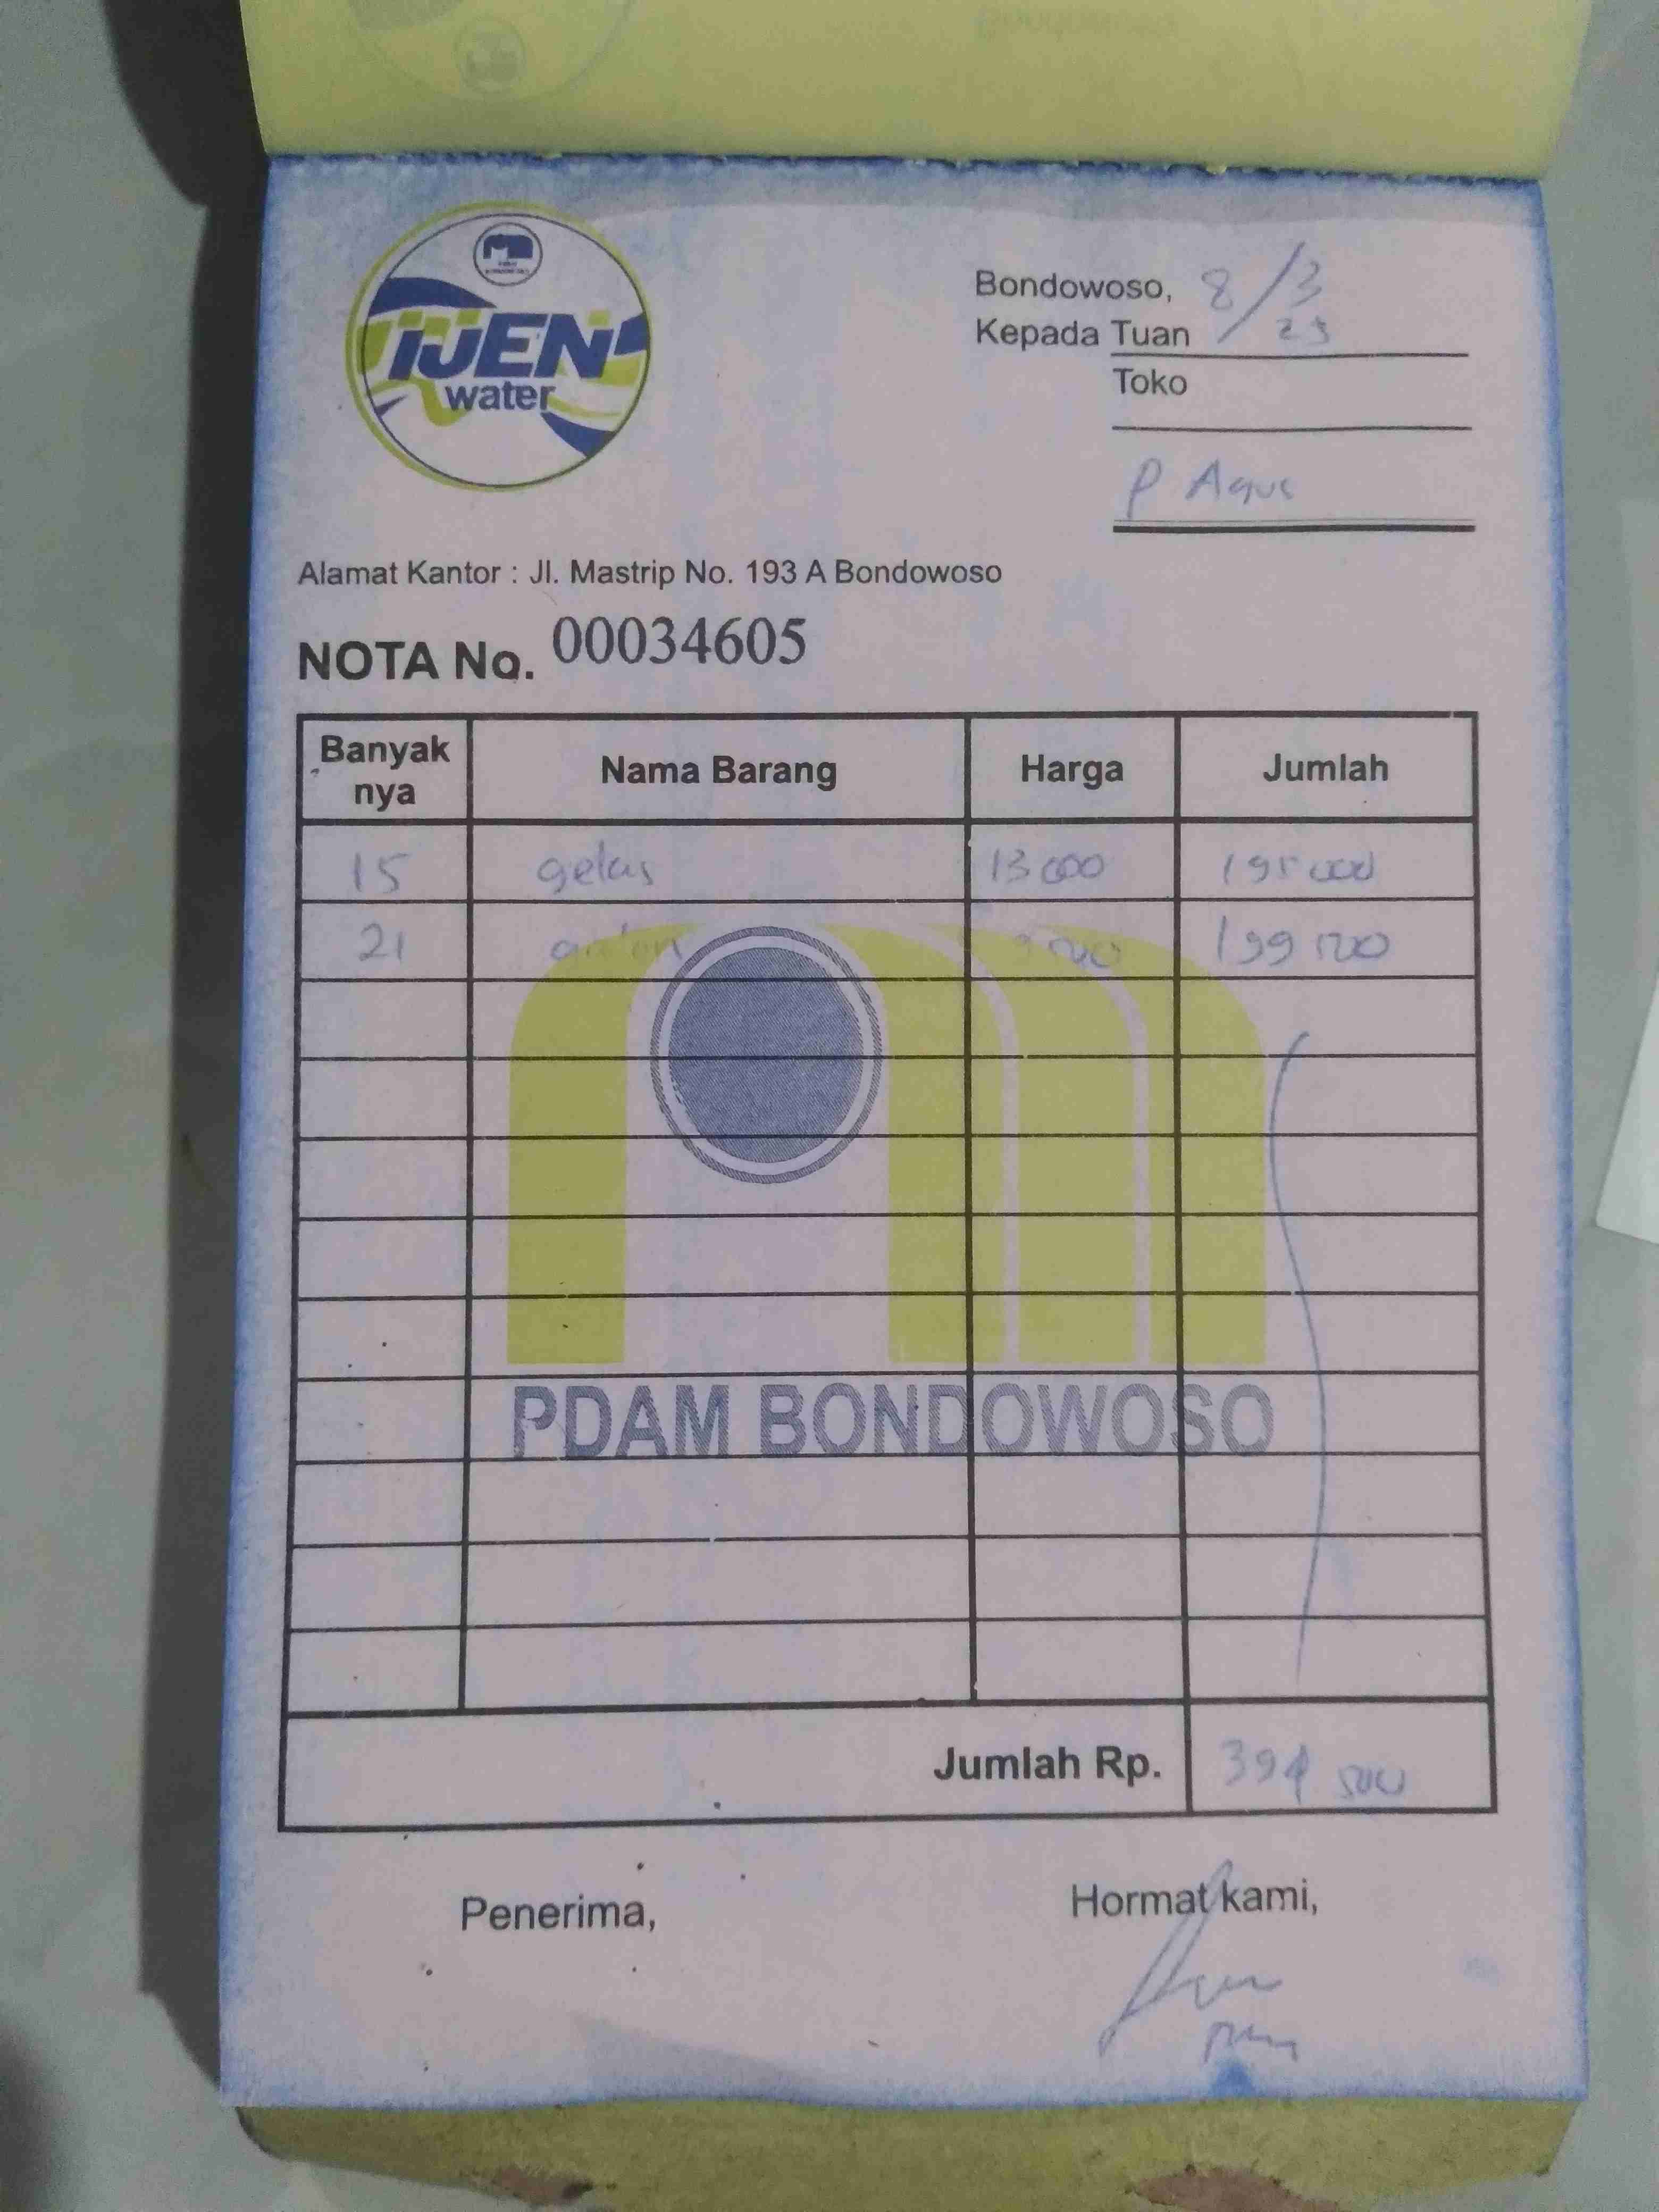 IJEN
water
Bondowoso, 8/3 23
Kepada Tuan
Toko
P Agus
Alamat Kantor : Jl. Mastrip No. 193 A Bondowoso
NOTA No. 00034605
Banyak nya Nama Barang Harga Jumlah
15 gelas 13 000 195 000
21 galon 9 500 199 500
PDAM BONDOWOSO
Jumlah Rp. 394 500
Penerima, Hormat kami,